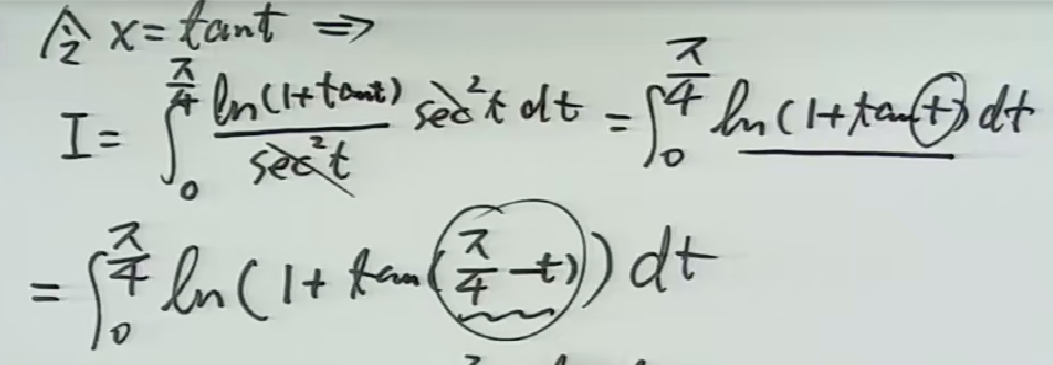 令 x = tant ⇒
I = ∫₀^{π/4} \frac{ln(1+tant)}{sec²t} sec²t dt = ∫₀^{π/4} ln(1+tan(t)) dt
= ∫₀^{π/4} ln(1+tan(π/4-t)) dt